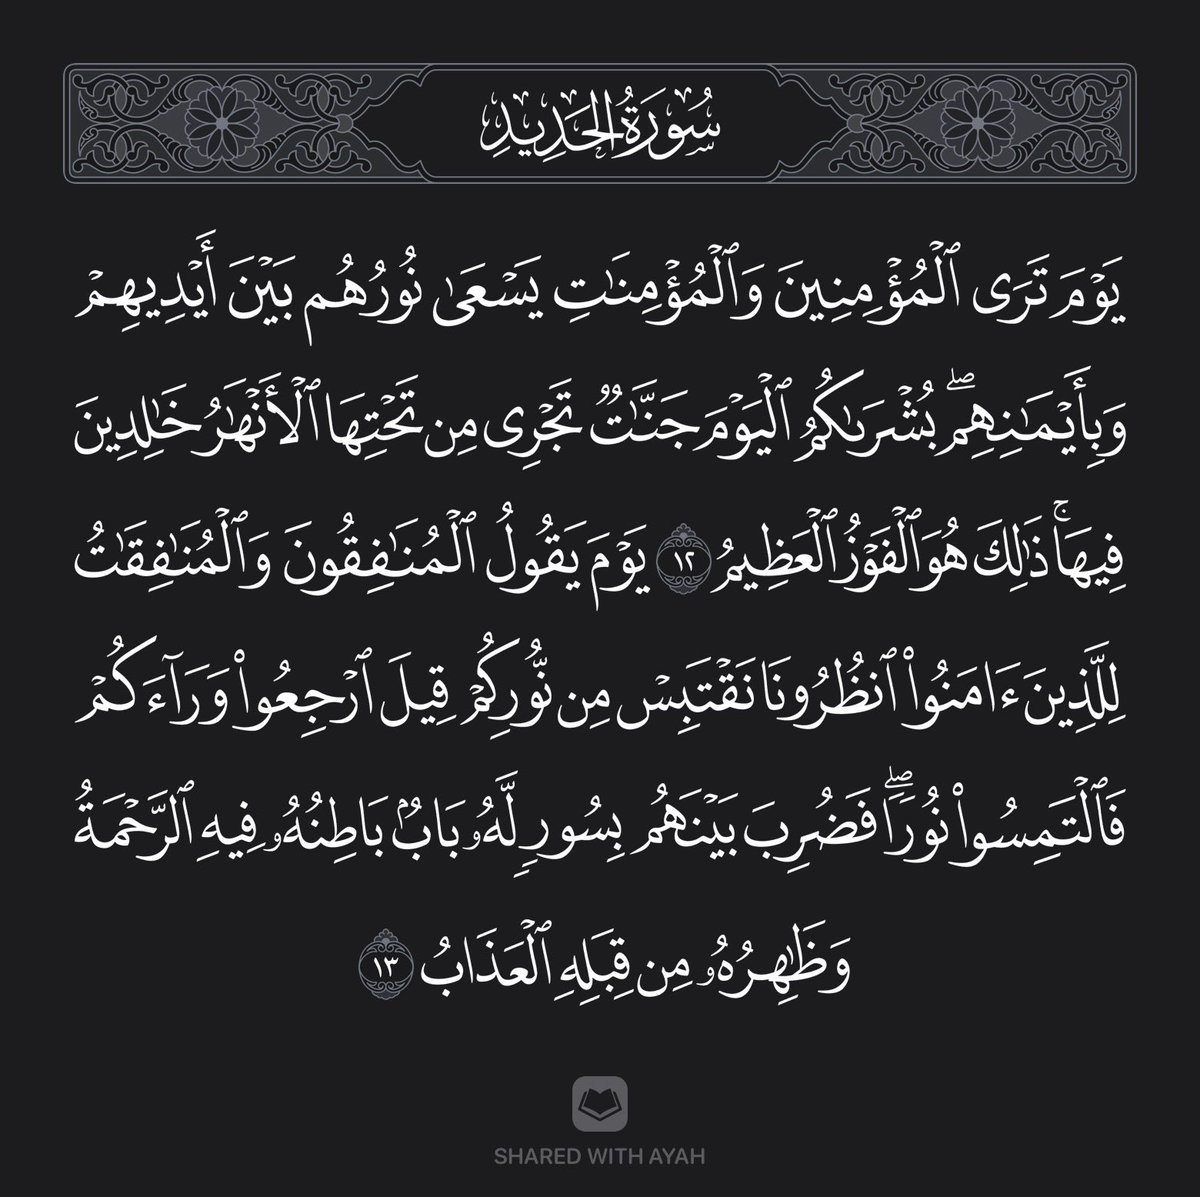 سُورَةُ الحَدِيدِ
يَوۡمَ تَرَى ٱلۡمُؤۡمِنِينَ وَٱلۡمُؤۡمِنَٰتِ يَسۡعَىٰ نُورُهُم بَيۡنَ أَيۡدِيهِمۡ
وَبِأَيۡمَٰنِهِمۖ بُشۡرَىٰكُمُ ٱلۡيَوۡمَ جَنَّٰتٞ تَجۡرِي مِن تَحۡتِهَا ٱلۡأَنۡهَٰرُ خَٰلِدِينَ
فِيهَاۚ ذَٰلِكَ هُوَ ٱلۡفَوۡزُ ٱلۡعَظِيمُ ١٢ يَوۡمَ يَقُولُ ٱلۡمُنَٰفِقُونَ وَٱلۡمُنَٰفِقَٰتُ
لِلَّذِينَ ءَامَنُواْ ٱنظُرُونَا نَقۡتَبِسۡ مِن نُّورِكُمۡ قِيلَ ٱرۡجِعُواْ وَرَآءَكُمۡ
فَٱلۡتَمِسُواْ نُورٗاۖ فَضُرِبَ بَيۡنَهُم بِسُورٖ لَّهُۥ بَابُۢ بَاطِنُهُۥ فِيهِ ٱلرَّحۡمَةُ
وَظَٰهِرُهُۥ مِن قِبَلِهِ ٱلۡعَذَابُ ١٣
SHARED WITH AYAH